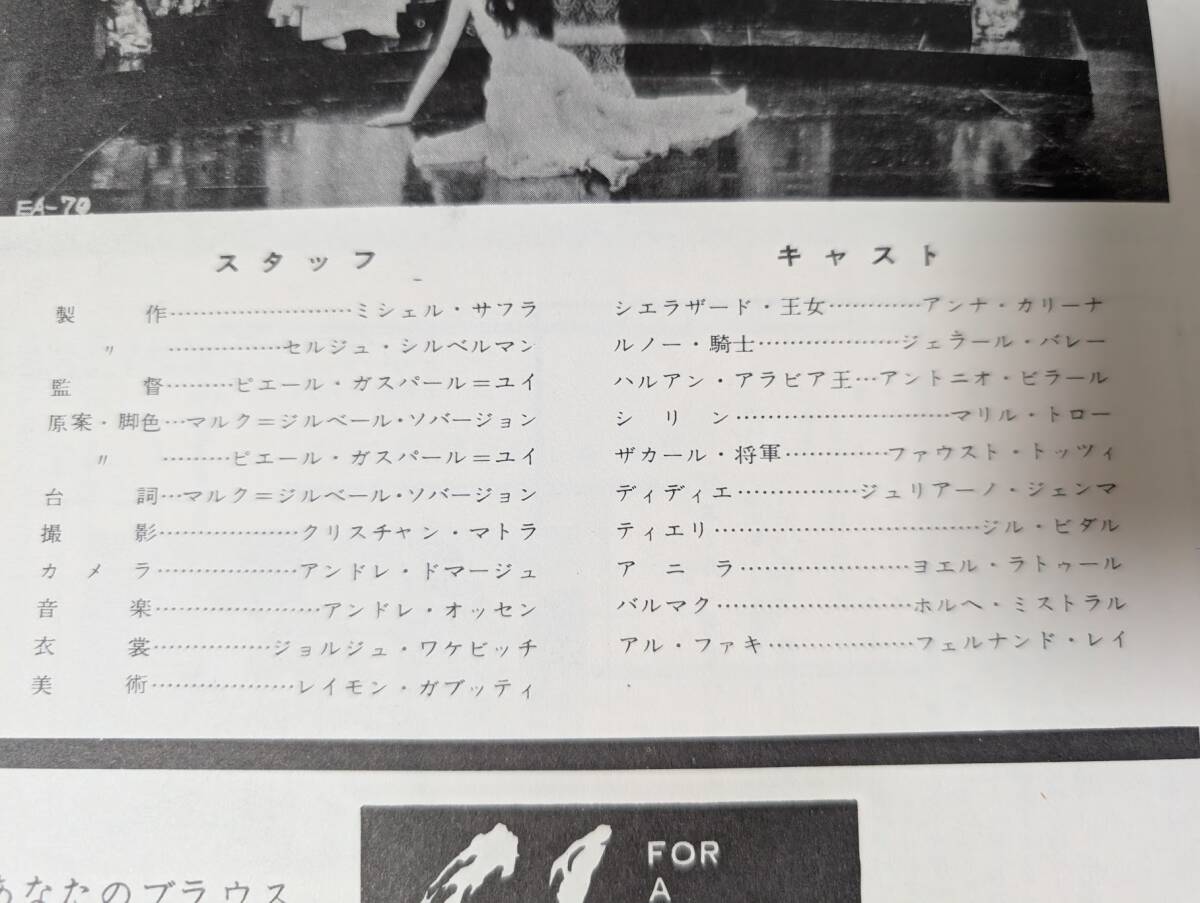 EA-70
スタッフ
製作……………………ミシェル・サフラ
〃 ……………セルジュ・シルベルマン
監督………ピエール・ガスパール＝ユイ
原案・脚色…マルク＝ジルベール・ソバージョン
〃 ………ピエール・ガスパール＝ユイ
台詞…マルク＝ジルベール・ソバージョン
撮影………………クリスチャン・マトラ
カメラ………………アンドレ・ドマージュ
音楽…………………アンドレ・オッセン
衣裳……………ジョルジュ・ワケビッチ
美術………………レイモン・ガブッティ
キャスト
シエラザード・王女…………アンナ・カリーナ
ルノー・騎士………………ジェラール・バレー
ハルアン・アラビア王…アントニオ・ビラール
シリン………………………マリル・トロー
ザカール・将軍…………ファウスト・トッツィ
ディディエ……………ジュリアーノ・ジェンマ
ティエリ……………………………ジル・ビダル
アニラ…………………ヨエル・ラトゥール
バルマク……………………ホルヘ・ミストラル
アル・ファキ………………フェルナンド・レイ
あなたのブラウス
FOR
A